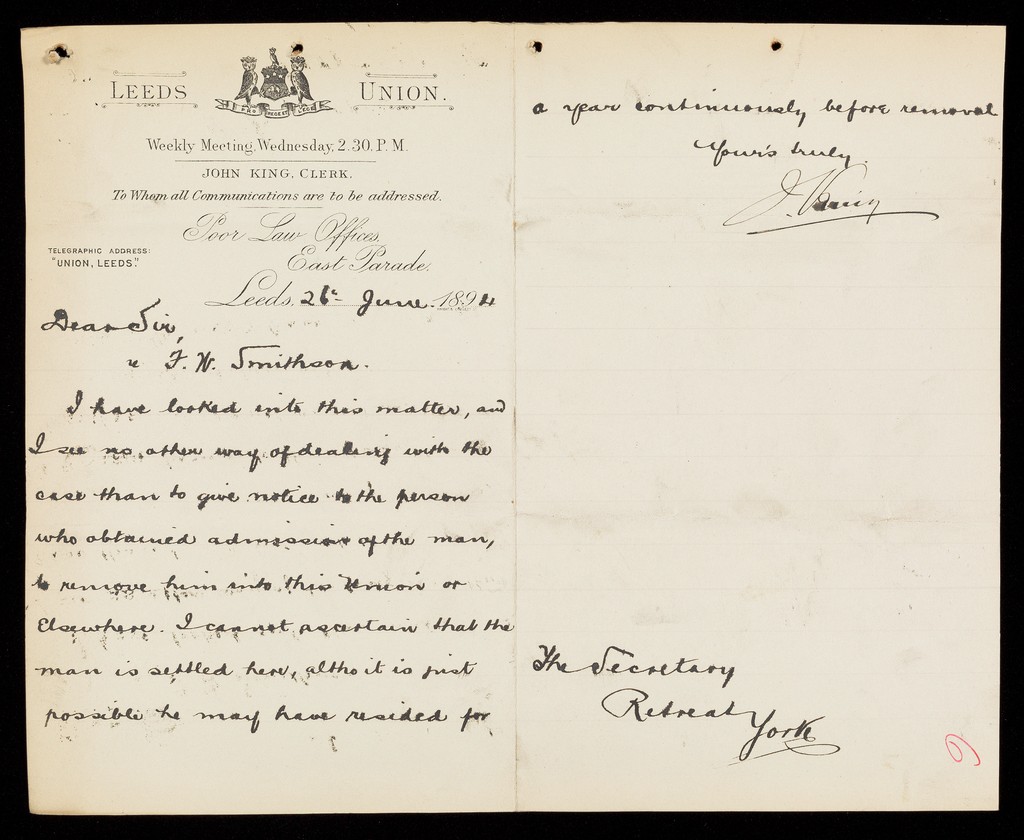 LEEDS UNION.
PRO REGE ET LEGE
Weekly Meeting, Wednesday, 2.30. P.M.
JOHN KING, CLERK.
To Whom all Communications are to be addressed.
Poor Law Offices,
East Parade.
TELEGRAPHIC ADDRESS:
"UNION, LEEDS."
Leeds, 26th June 1894
Dear Sir,
re F. W. Smithson.
I have looked into this matter, and
I see no other way of dealing with the
case than to give notice to the person
who obtained admission of the man,
to remove him into this Union or
Elsewhere. I cannot ascertain that the
man is settled here, altho it is just
possible he may have resided for
a year continuously before removal
Your's truly.
J. King
The Secretary
Retreat
York